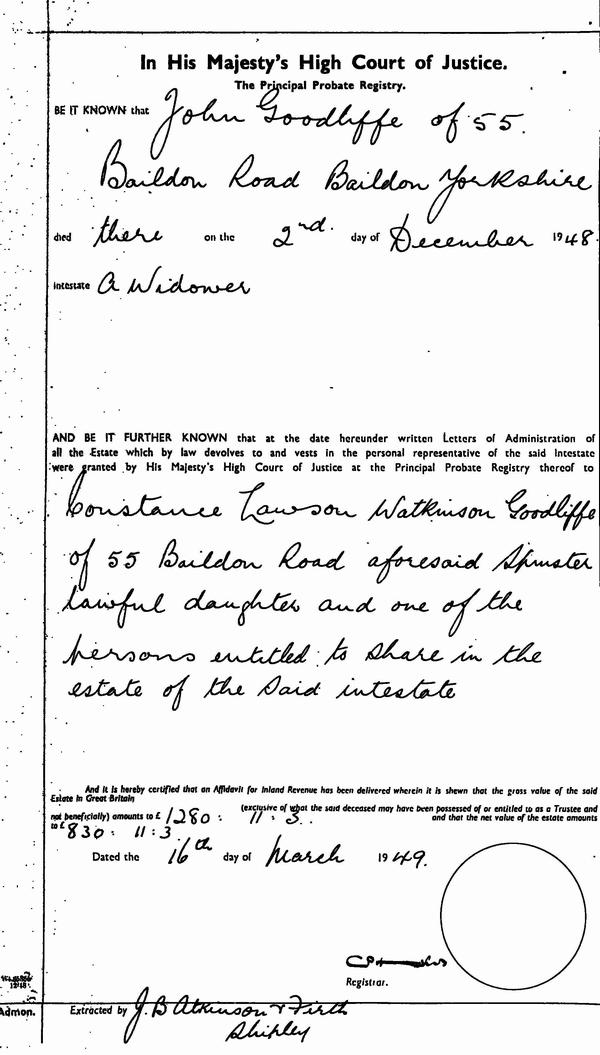 In His Majesty's High Court of Justice.
The Principal Probate Registry.
BE IT KNOWN that John Goodliffe of 55.
Baildon Road Baildon Yorkshire
died there on the 2nd. day of December 1948.
Intestate A Widower
AND BE IT FURTHER KNOWN that at the date hereunder written Letters of Administration of
all the Estate which by law devolves to and vests in the personal representative of the said Intestate
were granted by His Majesty's High Court of Justice at the Principal Probate Registry thereof to
Constance Lawson Watkinson Goodliffe
of 55 Baildon Road aforesaid Spinster
lawful daughter and one of the
persons entitled to share in the
estate of the said intestate
And it is hereby certified that an Affidavit for Inland Revenue has been delivered wherein it is shewn that the gross value of the said
Estate in Great Britain
(exclusive of what the said deceased may have been possessed of or entitled to as a Trustee and
not beneficially) amounts to £ 1280 : 11 : 3. and that the net value of the estate amounts
to £ 830 : 11 : 3
Dated the 16th day of March 1949.
Registrar.
Admon. Extracted by J. B Atkinson & Firth
Shipley